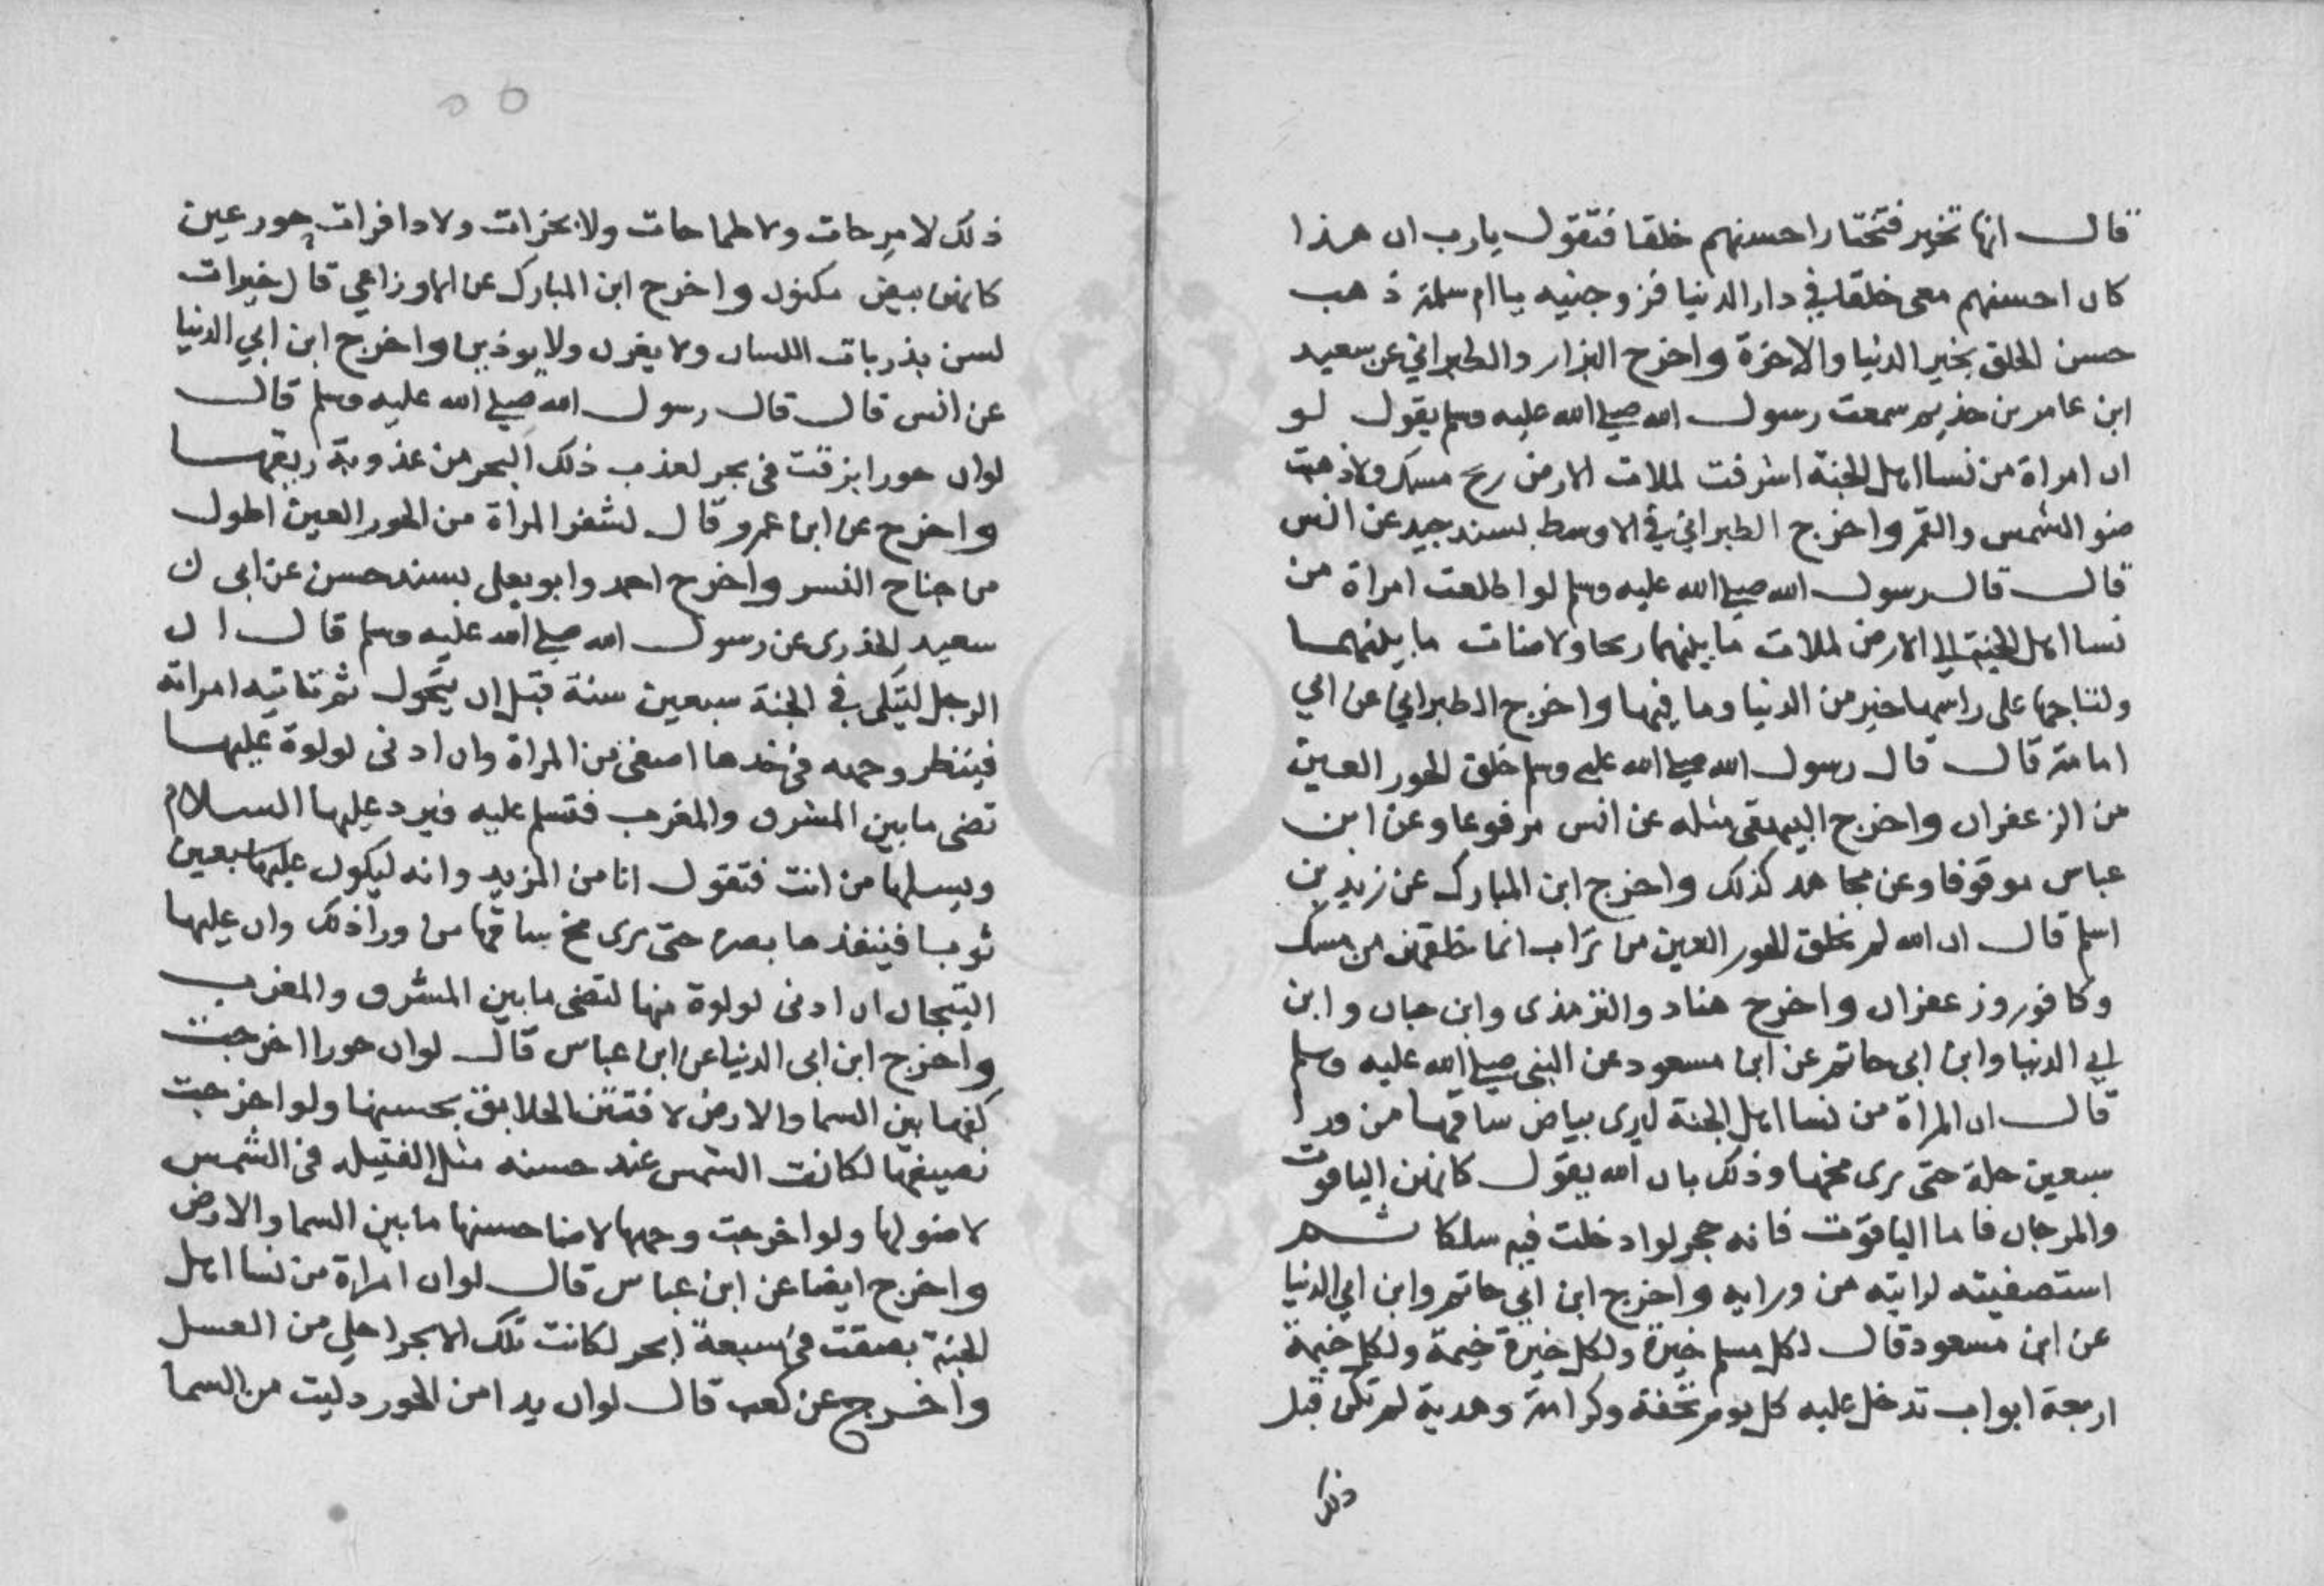 قال انها تخير فتختار احسنهم خلقا فتقول يارب ان هذا
كان احسنهم معى خلقا في دار الدنيا فزوجنيه يا ام سلمة ذهب
حسن الخلق بخير الدنيا والاخرة واخرج البزار والطبراني عن سعيد
ابن عامر بن حذيم سمعت رسول الله صلى الله عليه وسلم يقول لو
ان امراة من نسا اهل الجنة اشرفت لملات الارض ريح مسك ولاذهبت
ضو الشمس والقمر واخرج الطبراني في الاوسط بسند جيد عن انس
قال قال رسول الله صلى الله عليه وسلم لو اطلعت امراة من
نسا اهل الجنة الى الارض لملات ما بينهما ريحا ولاضات ما بينهما
ولتاجها على راسها خير من الدنيا وما فيها واخرج الطبراني عن ابي
امامة قال قال رسول الله صلى الله عليه وسلم خلق الحور العين
من الزعفران واخرج البيهقى مثله عن انس مرفوعا وعن ابن
عباس موقوفا وعن مجاهد كذلك واخرج ابن المبارك عن زيد بن
اسلم قال ان الله لم يخلق الحور العين من تراب انما خلقهن من مسك
وكافور وزعفران واخرج هناد والترمذى وابن حبان وابن
ابي الدنيا وابن ابى حاتم عن ابن مسعود عن النبى صلى الله عليه وسلم
قال ان المراة من نسا اهل الجنة ليرى بياض ساقها من ورا
سبعين حلة حتى يرى مخها وذلك بان الله يقول كانهن الياقوت
والمرجان فاما الياقوت فانه حجر لو ادخلت فيه سلكا ثم
استصفيته لرايته من ورايه واخرج ابن ابي حاتم وابن ابي الدنيا
عن ابن مسعود قال لكل مسلم خيرة ولكل خيرة خيمة ولكل خيمة
اربعة ابواب تدخل عليه كل يوم تحفة وكرامة وهدية لم تكن قبل
ذلك
ذلك لا مرحات ولا طماحات ولا بخرات ولا دافرات حور عين
كانهن بيض مكنون واخرج ابن المبارك عن الاوزاعي قال خيرات
لسن بذربات اللسان ولا يغرن ولا يوذين واخرج ابن ابي الدنيا
عن انس قال قال رسول الله صلى الله عليه وسلم قال
لو ان حورا بزقت فى بحر لعذب ذلك البحر من عذوبة ريقها
واخرج عن ابن عمرو قال لشفر المراة من الحور العين اطول
من جناح النسر واخرج احمد وابو يعلى بسند حسن عن ابى
سعيد الخذرى عن رسول الله صلى الله عليه وسلم قال ان
الرجل ليتكى في الجنة سبعين سنة قبل ان يتحول ثم تاتيه امراته
فينظر وجهه فى خدها اصفى من المراة وان ادنى لولوة عليها
تضى ما بين المشرق والمغرب فتسلم عليه فيرد عليها السلام
ويسلها من انت فتقول انا من المزيد وانه ليكون عليها سبعين
ثوبا فينفذها بصره حتى يرى مخ ساقها من ورا ذلك وان عليها
التيجان ان ادنى لولوة منها لتضى ما بين المشرق والمغرب
واخرج ابن ابى الدنيا عن ابن عباس قال لو ان حورا اخرجت
كفها بين السما والارض لافتتن الخلايق بحسنها ولو اخرجت
نصيفها لكانت الشمس عند حسنه مثل الفتيله فى الشمس
لا ضو لها ولو اخرجت وجهها لاضا حسنها ما بين السما والارض
واخرج ايضا عن ابن عباس قال لو ان امراة من نسا اهل
الجنة بصقت فى سبعة ابحر لكانت تلك الابحر احلى من العسل
واخرج عن كعب قال لو ان يدا من الحور دليت من السما